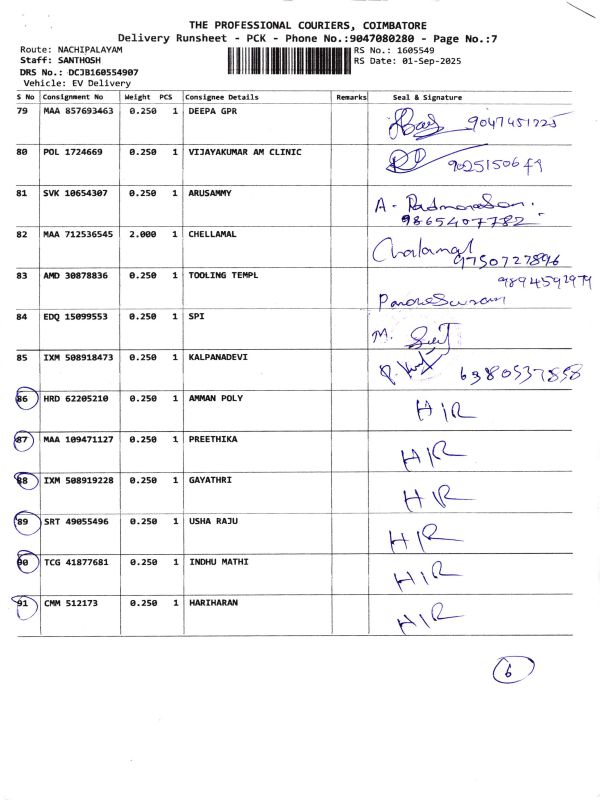 THE PROFESSIONAL COURIERS, COIMBATORE
Delivery Runsheet - PCK - Phone No.:9047080280 - Page No.:7
Route: NACHIPALAYAM RS No.: 1605549
Staff: SANTHOSH RS Date: 01-Sep-2025
DRS No.: DCJB160554907
Vehicle: EV Delivery
S No Consignment No Weight PCS Consignee Details Remarks Seal & Signature
79 MAA 857693463 0.250 1 DEEPA GPR 9047451725
80 POL 1724669 0.250 1 VIJAYAKUMAR AM CLINIC
81 SVK 10654307 0.250 1 ARUSAMMY A.
9865407782
82 MAA 712536545 2.000 1 CHELLAMAL Chalamal
9750727896
83 AMD 30878836 0.250 1 TOOLING TEMPL 9894592979
84 EDQ 15099553 0.250 1 SPI M.
85 IXM 508918473 0.250 1 KALPANADEVI 6380537858
86 HRD 62205210 0.250 1 AMMAN POLY HIR
87 MAA 109471127 0.250 1 PREETHIKA HIR
88 IXM 508919228 0.250 1 GAYATHRI HIR
89 SRT 49055496 0.250 1 USHA RAJU HIR
90 TCG 41877681 0.250 1 INDHU MATHI HIR
91 CMM 512173 0.250 1 HARIHARAN HIR
6